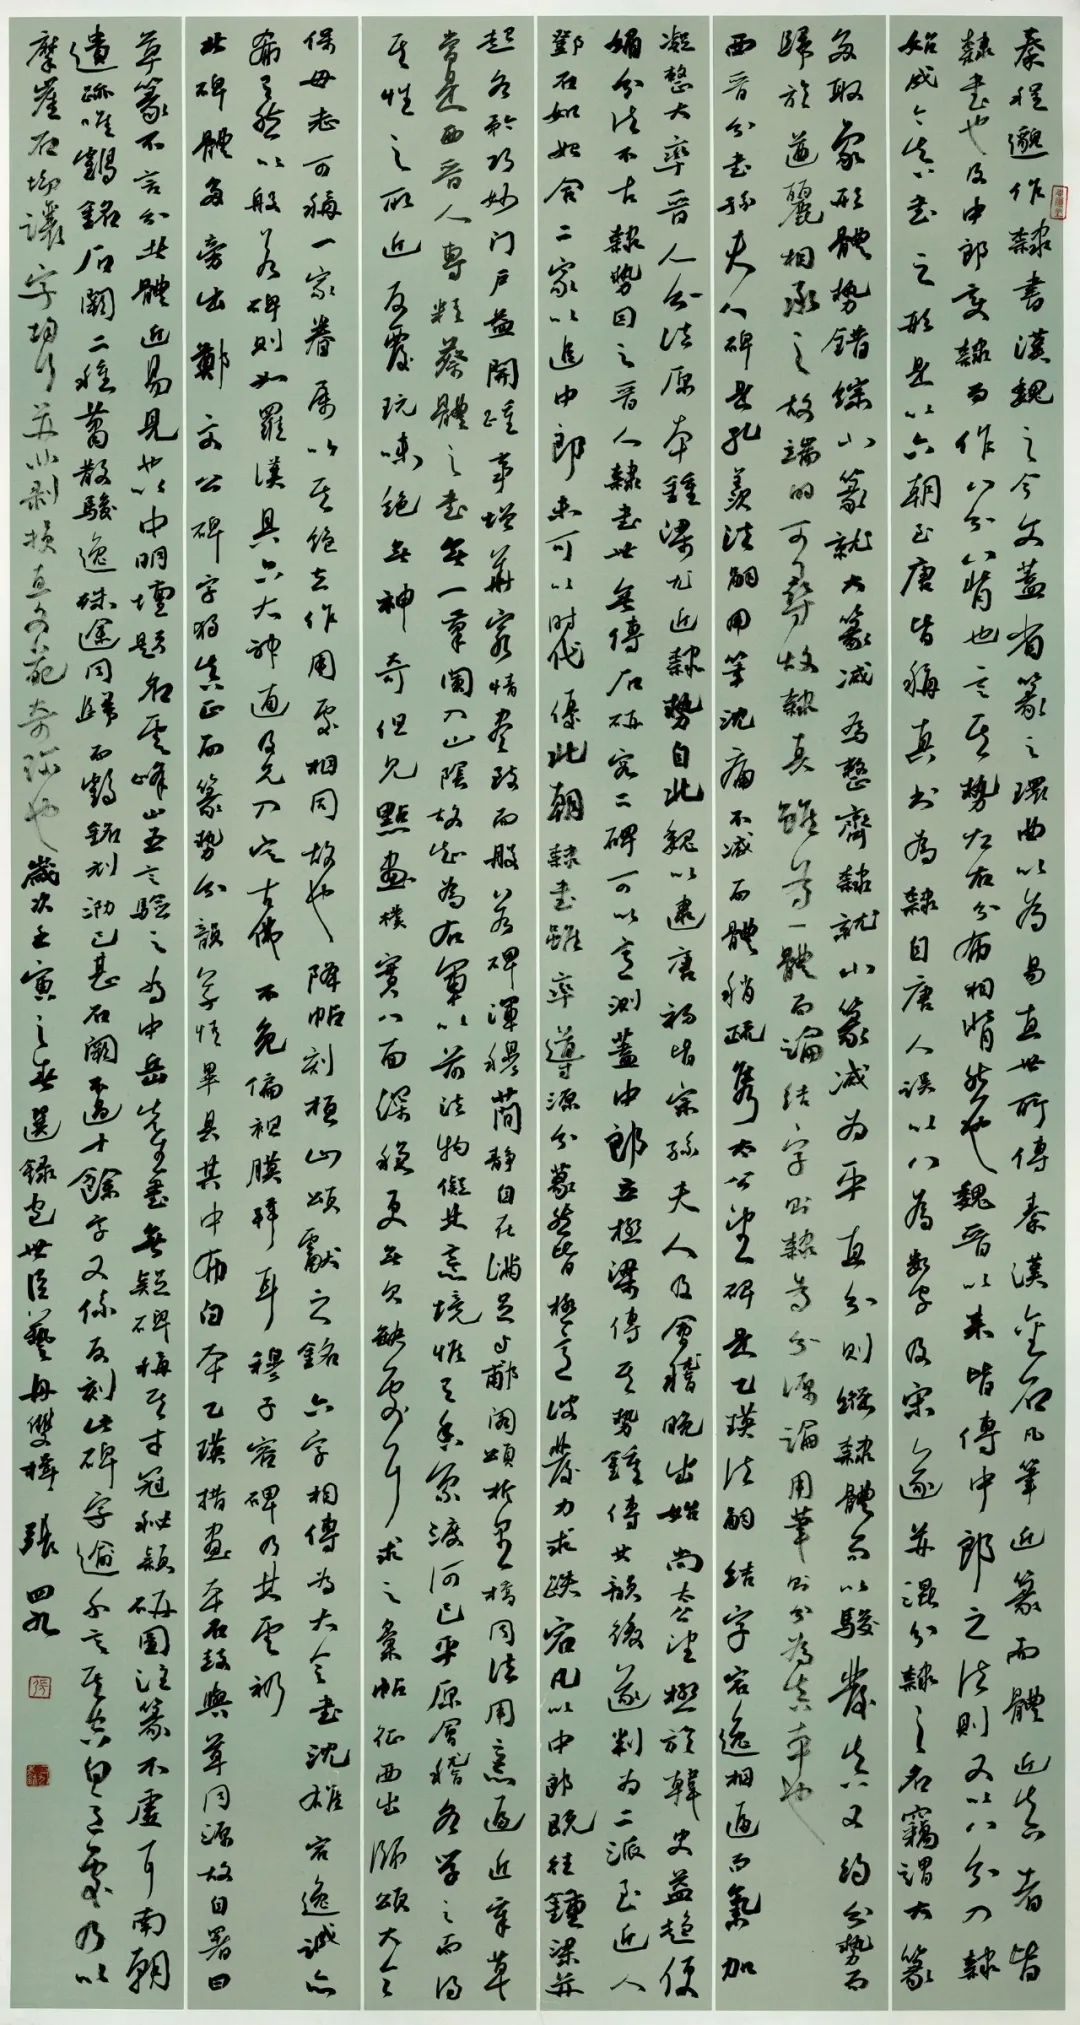 秦程邈作隸書漢魏之間謂之今文蓋省篆之環曲以為易直世所傳秦漢金石凡筆近篆而體近真者皆
隸書也及中郎變隸而作八分八背也言其勢左右分布相背然也魏晉以來皆傳中郎之法則又以八分入隸
始成今真書之形是以六朝至唐皆稱真書為隸自唐人誤以八為數字及宋遂并混分隸之名竊謂大篆
多取象形體勢錯綜小篆就大篆減為整齊隸就小篆減為平直分則縱隸體而以駿發真又約分勢而
歸於遒麗相承之故端的可尋故隸真雖為一體而論結字則隸為分源論用筆則分為真本也
西晉分書孫夫人碑是孔羨法嗣用筆沈痛不減而體稍疏隽太公望碑是乙瑛法嗣結字宕逸相逼而氣加
凝整大率晉人分法原本鍾梁尤近隸勢自北魏以逮唐初皆宗孫夫人及會稽晚出始尚太公望極於韓史益趨便
媚分法不古隸勢因之晉人隸書世無傳石研究二碑可以意測蓋中郎立極梁傳其勢鍾傳其韻後遂判為二派至近人
鄧石如始合二家以追中郎未可以時代優北朝隸書雖率導源分篆然皆極意波發力求跌宕凡以中郎既往鍾梁并
起各矜巧妙門戶益開踵事增華窮情盡致而般若碑渾穆簡靜自在滿足與郙閣頌析里橋同法用意逼近章草
當是西晉人專精蔡體之書無一筆闌入山陰故知為右軍以前法物儗其意境惟有香象渡河已平原會稽各學之而得
其性之所近反覆玩味絕無神奇但見點畫樸實八面深穩更無欠缺處耳求之彙帖征西出師頌大令
保母志可稱一家眷屬以其絕去作用處相同故也降帖刻桓山頌獻之銘六字相傳為大令書沈雄宕逸誠亦
有之然以般若碑則如羅漢具六大神通及見入定古佛不免偏袒膜拜耳穆子容碑乃其雲礽
北碑體多旁出鄭文公碑字獨真正而篆勢分韻草情畢具其中布白本乙瑛措畫本石鼓與草同源故自署曰
草篆不言分者體近易見也以中明壇題名雲峰山五言驗之為中岳先生書無疑碑稱其才冠秘穎研圖注篆不虛耳南朝
遺蹟唯鶴銘石闕二種蕭散駿逸殊途同歸而鶴銘刓泐已甚石闕不過十餘字又係反刻此碑字逾千言其空白之處乃以
摩崖石泐讓字均行并非剝損真文苑奇珍也歲次壬寅之春選錄包世臣藝舟雙楫張四九